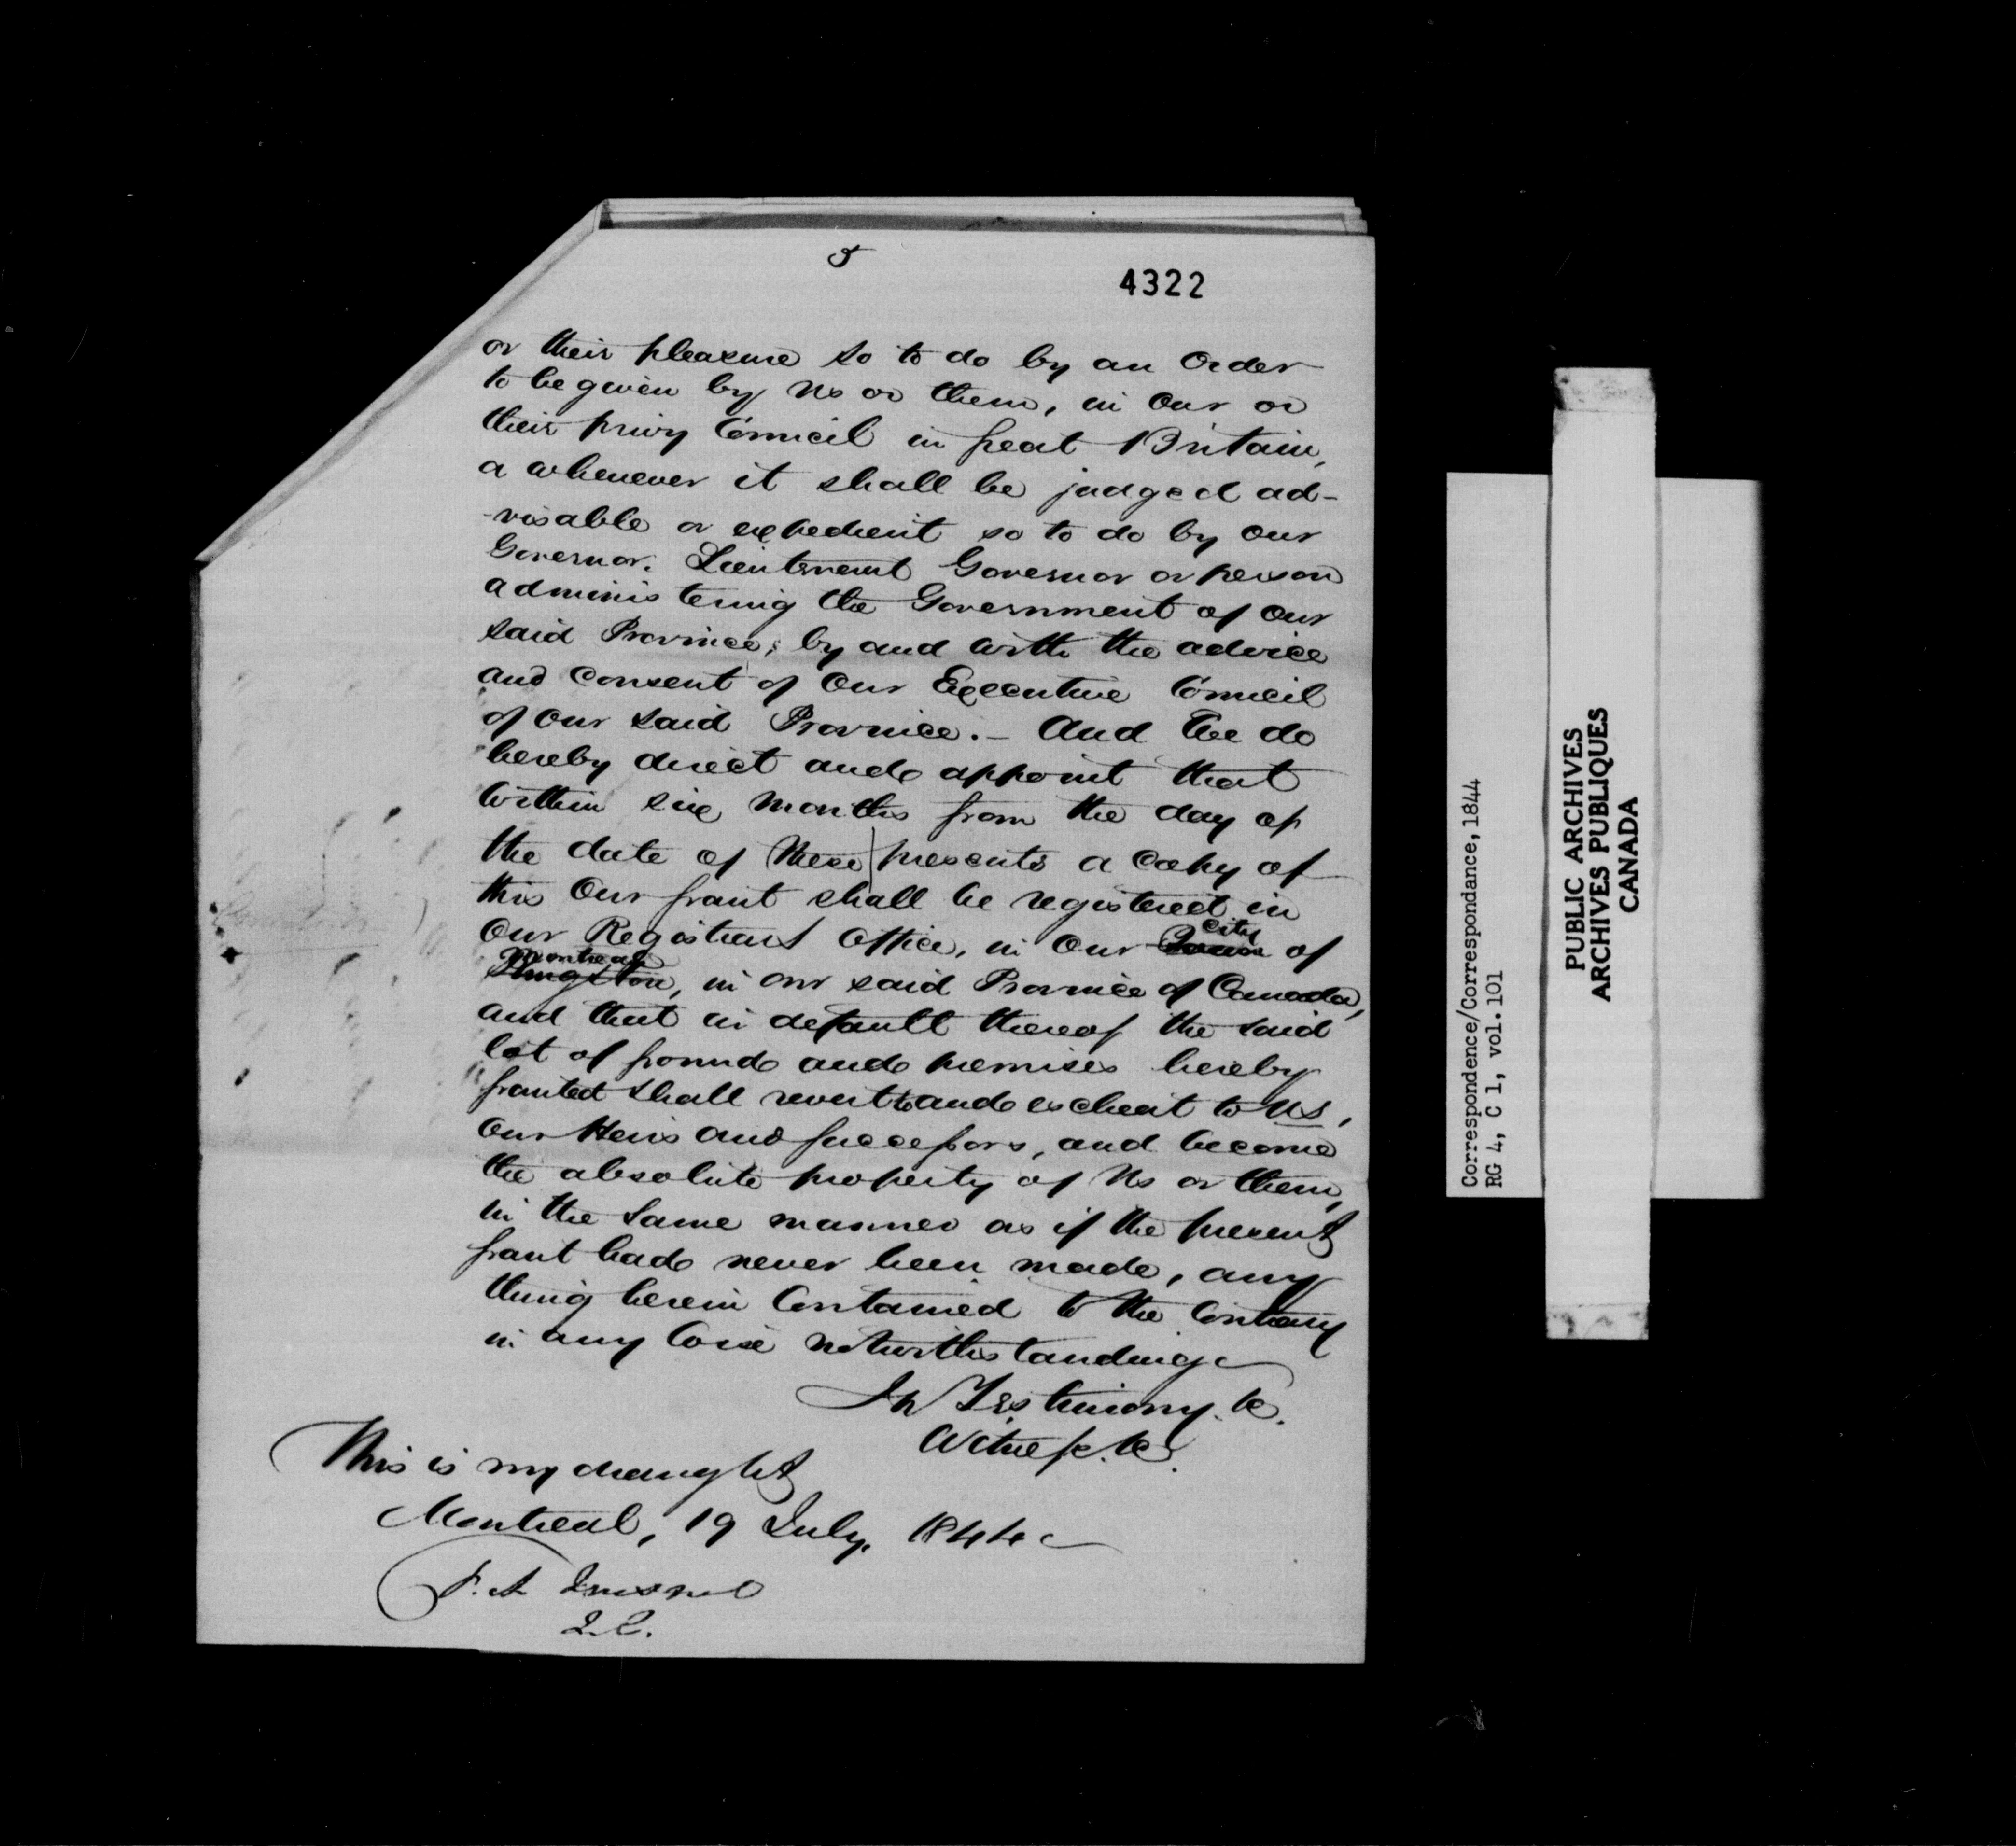 5
4322
or their pleasure so to do by an Order
to be given by us or them, in Our or
their privy Council in Great Britain,
or whenever it shall be judged ad-
-visable or expedient so to do by Our
Governor, Lieutenant Governor or person
administering the Government of Our
said Province, by and with the advice
and consent of Our Executive Council
of Our said Province. - And We do
hereby direct and appoint that
within six Months from the day of
the date of these presents a Copy of
this Our grant shall be registered in
Our Registrar's Office, in Our Town City of
Kingston Montreal, in our said Province of Canada,
and that in default thereof the said
lot of ground and premises hereby
granted shall revert to and escheat to Us,
Our Heirs and Successors, and become
the absolute property of Us or them,
in the same manner as if the present
grant had never been made, any
thing herein Contained to the Contrary
in any wise notwithstanding
In Testimony &c.
Witness &c.
This is my draught
Montreal, 19 July, 1844
F. A. Quesnel
Q.C.
Correspondence/Correspondance, 1844
RG 4, C 1, vol. 101
PUBLIC ARCHIVES
ARCHIVES PUBLIQUES
CANADA